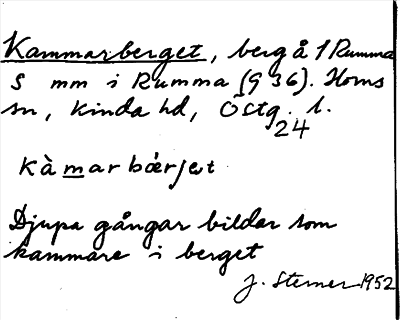 Kammarberget, berg å 1 Rumma
S mm i Rumma (9 36). Horns
sn, Kinda hd, Östg. l.
24
kàmar bærjet
Djupa gångar bildar som
kammare i berget
J. Sterner 1952